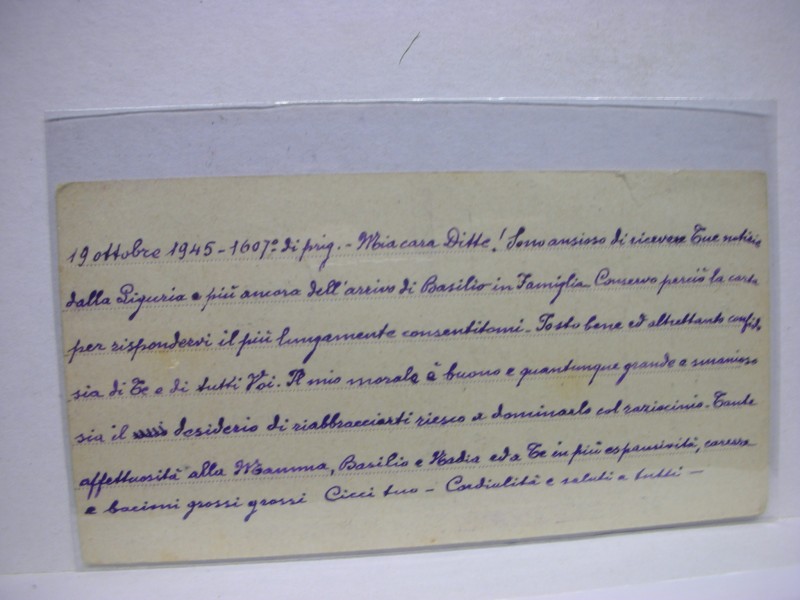 19 ottobre 1945 - 1607º di prig. - Mia cara Ditte! Sono ansioso di ricevere Tue notizie
dalla Liguria e più ancora dell'arrivo di Basilio in Famiglia. Conservo perciò la carta
per rispondervi il più lungamente consentitomi. Io sto bene ed altrettanto confido
sia di Te e di tutti Voi. Il mio morale è buono e quantunque grande e smanioso
sia il desiderio di riabbracciarti riesco a dominarlo col raziocinio. Tante
affettuosità alla Mamma, Basilio e Nadia ed a Te in più espansività, carezze
e bacioni grossi grossi Cicci tuo - Cordialità e saluti a tutti -